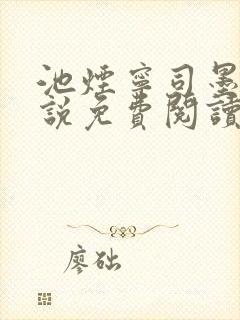 池煙寧司墨
說免費閱讀
廖础